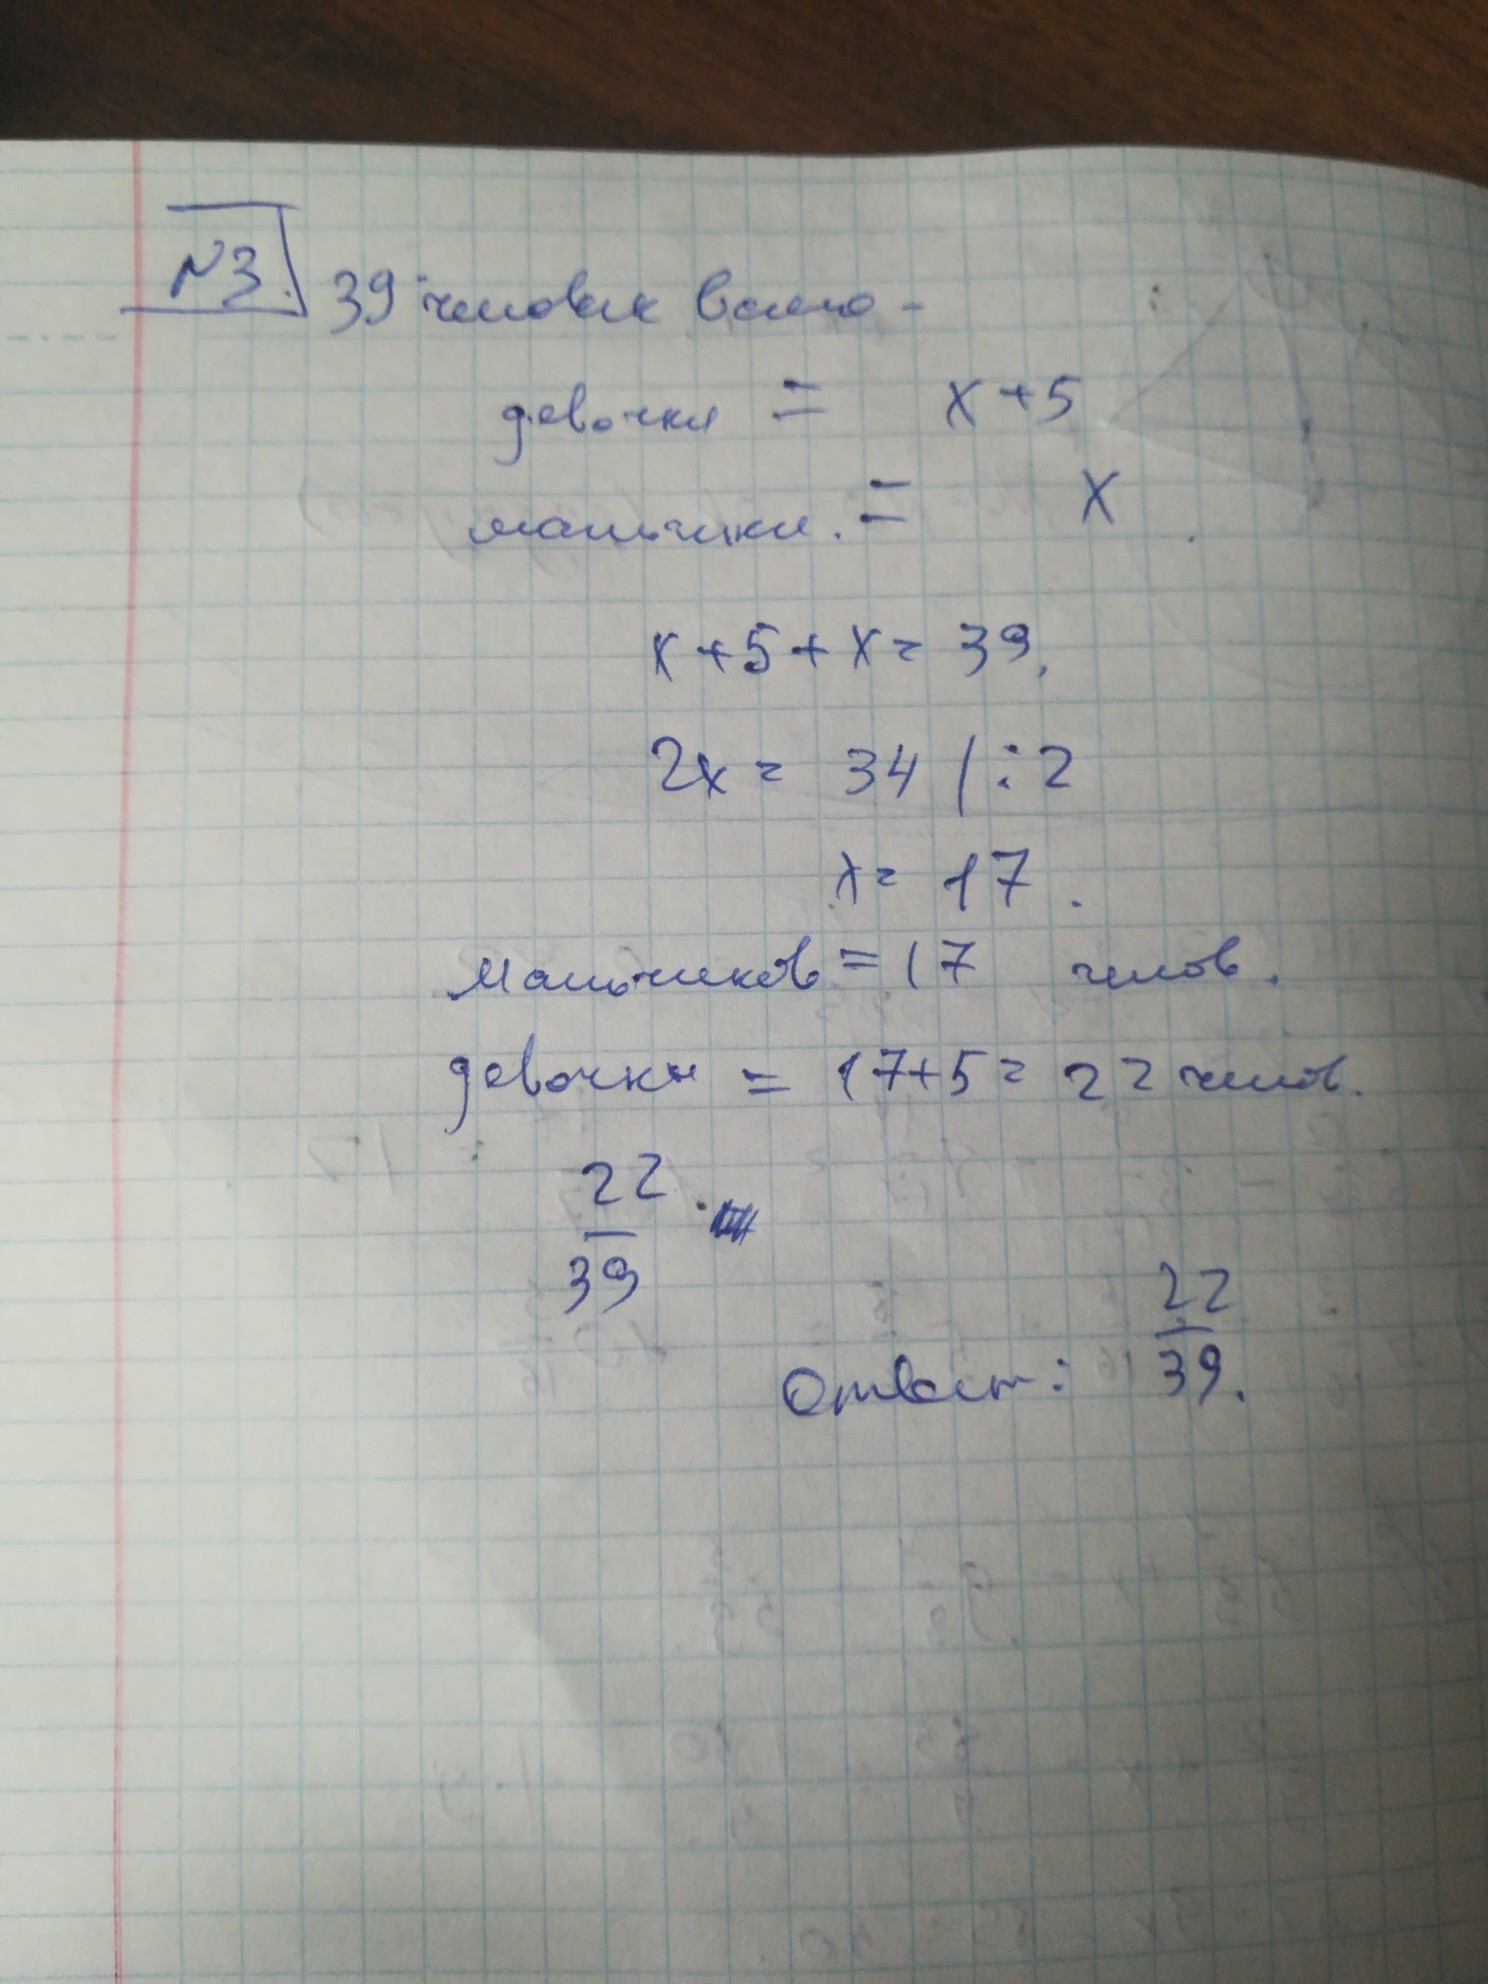 N3. 39 человек всего -
девочки = x+5
мальчики. = x
x+5+x=39.
2x = 34 | :2
x = 17.
Мальчиков = 17 челов.
девочки = 17+5 = 22 челов.
22
39
Ответ: 22
39.